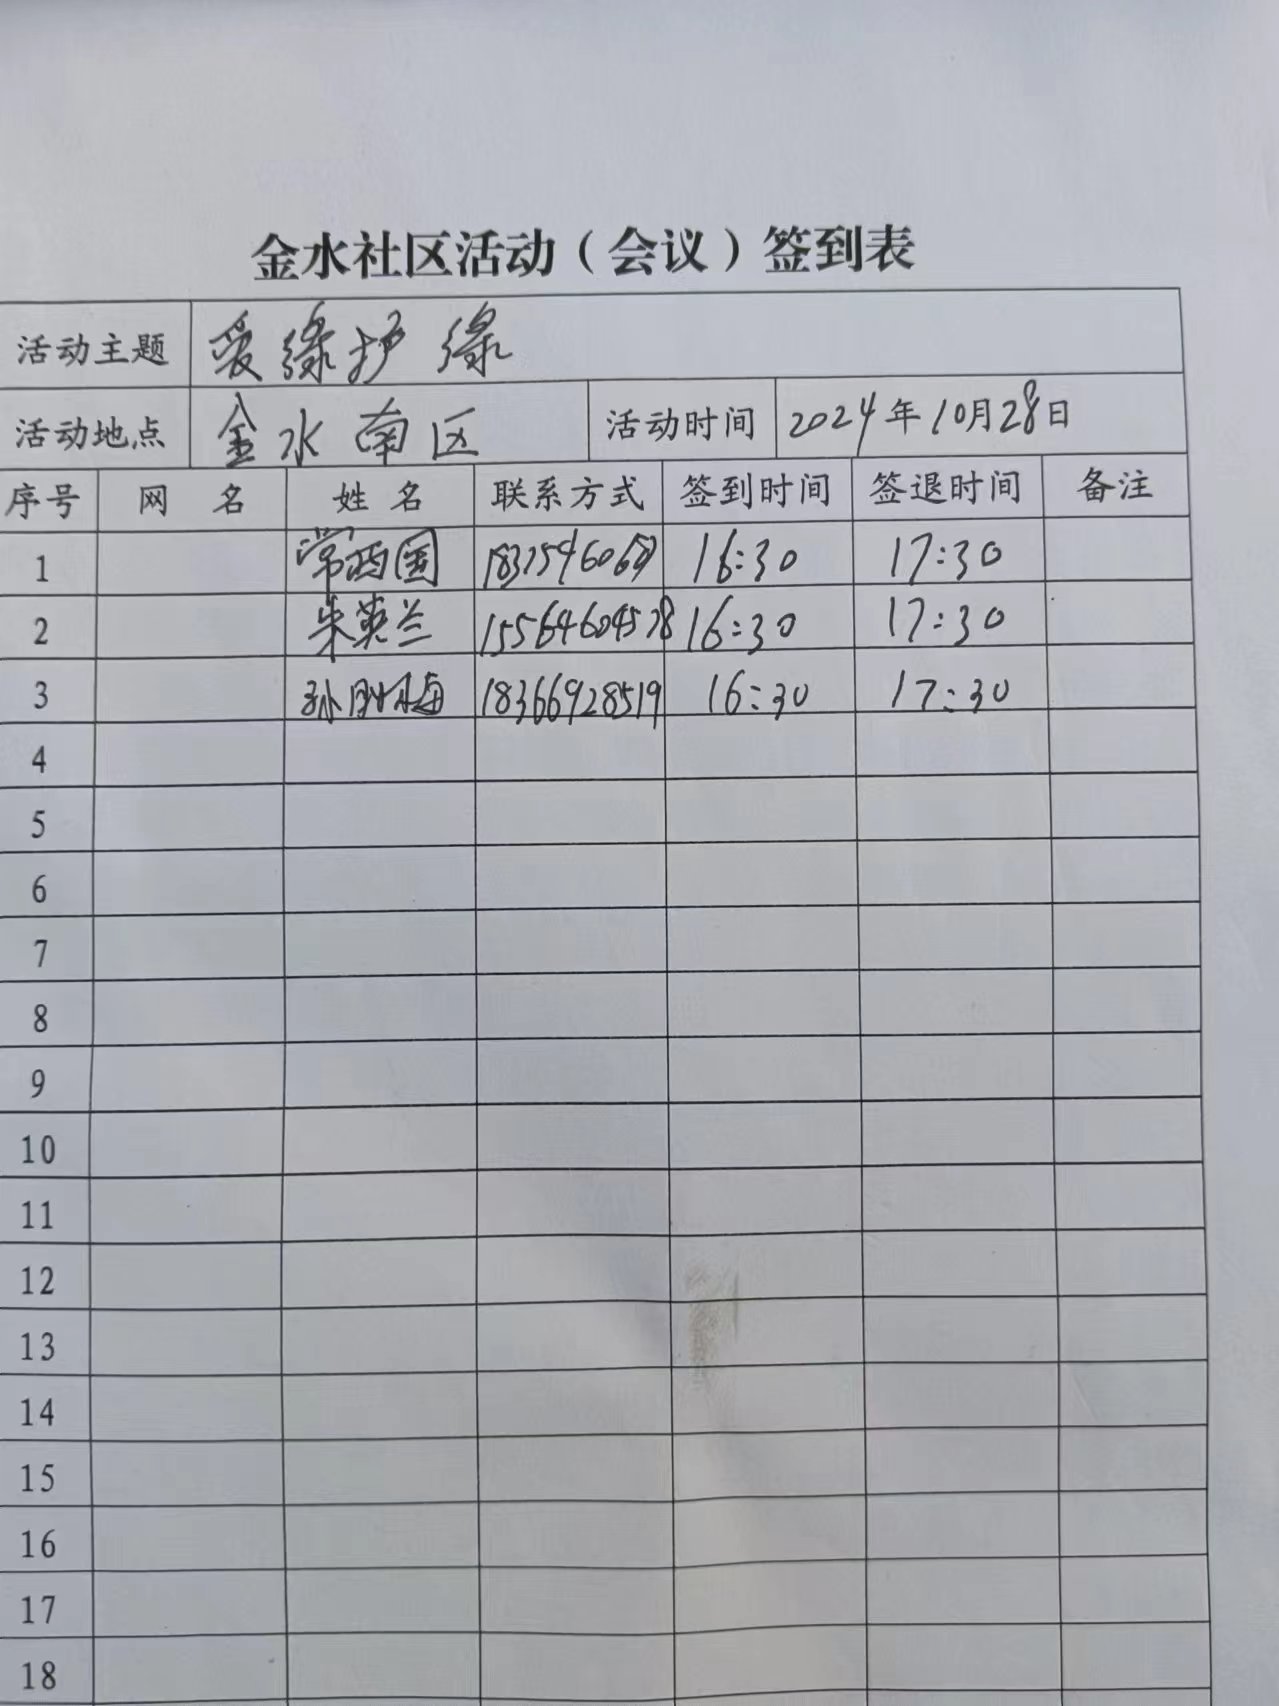 金水社区活动（会议）签到表
活动主题 爱绿护绿
活动地点 金水南区 活动时间 2024年10月28日
序号 网 名 姓 名 联系方式 签到时间 签退时间 备注
1 常西国 16:30 17:30
2 朱英兰 15564604578 16:30 17:30
3 18366928519 16:30 17:30
4
5
6
7
8
9
10
11
12
13
14
15
16
17
18